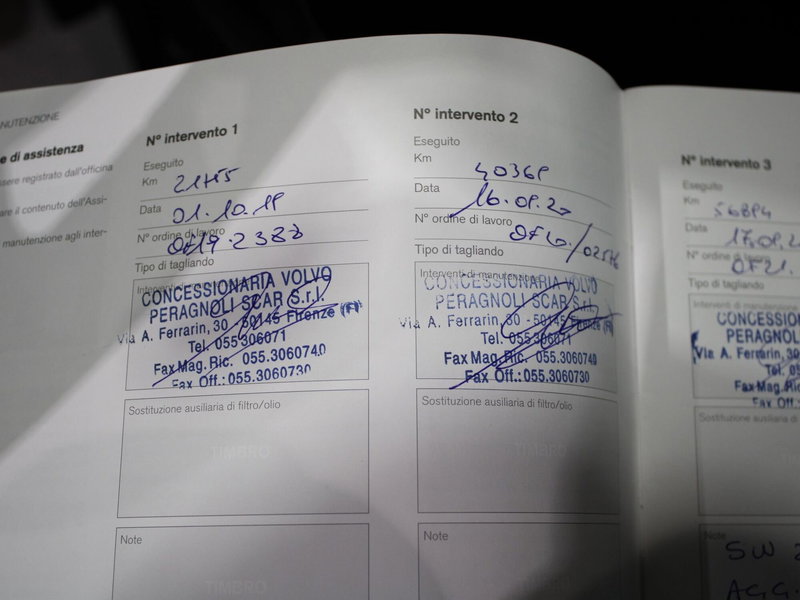 NUTENZIONE
e di assistenza
ssere registrato dall'officina
are il contenuto dell'Assi-
manutenzione agli inter-
N° intervento 1
Eseguito
Km
Data 01.10.19
N° ordine di lavoro
Tipo di tagliando
CONCESSIONARIA VOLVO
PERAGNOLI SCAR S.r.l.
Via A. Ferrarin, 30 - 50145 Firenze (FI)
Tel. 055.306071
Fax Mag. Ric. 055.3060740
Fax Off.: 055.3060730
Sostituzione ausiliaria di filtro/olio
TIMBRO
Note
TIMBRO
N° intervento 2
Eseguito
Km 40369
Data 16.09.20
N° ordine di lavoro
Tipo di tagliando
Interventi di manutenzione
CONCESSIONARIA VOLVO
PERAGNOLI SCAR S.r.l.
Via A. Ferrarin, 30 - 50145 Firenze (FI)
Tel. 055.306071
Fax Mag. Ric. 055.3060740
Fax Off.: 055.3060730
Sostituzione ausiliaria di filtro/olio
Note
N° intervento 3
Eseguito
Km 56894
Data 17.09.2
N° ordine di lavoro
OF21.
Tipo di tagliando
Interventi di manutenzione
CONCESSION
PERAGNOL
Via A. Ferrarin, 30
Tel. 05
Fax Mag. Ric
Fax Off.: 05
Sostituzione ausiliaria di
Note
SW 2
AGG